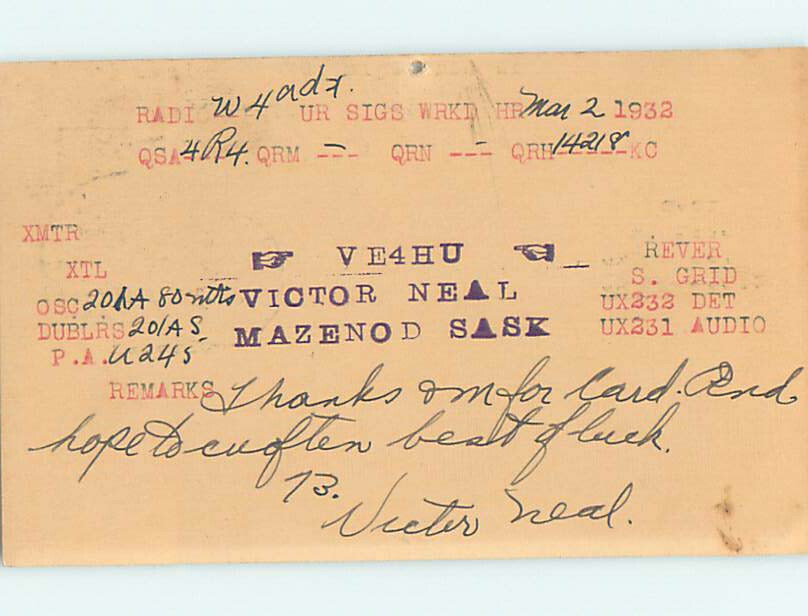 RADIO W4adx. UR SIGS WRKD HR Mar 2 1932
QSA 4 R4. QRM --- – QRN --- - QRH 14218 KC
XMTR
XTL
OSC 201A 80 mtrs
DUBLRS 201AS
P.A. U245
☞ VE4HU ☜
VICTOR NEAL
MAZENOD SASK
REVER
S. GRID
UX232 DET
UX231 AUDIO
REMARKS Thanks om for Card. And
hope to cu often best of luck.
73.
Victor Neal.